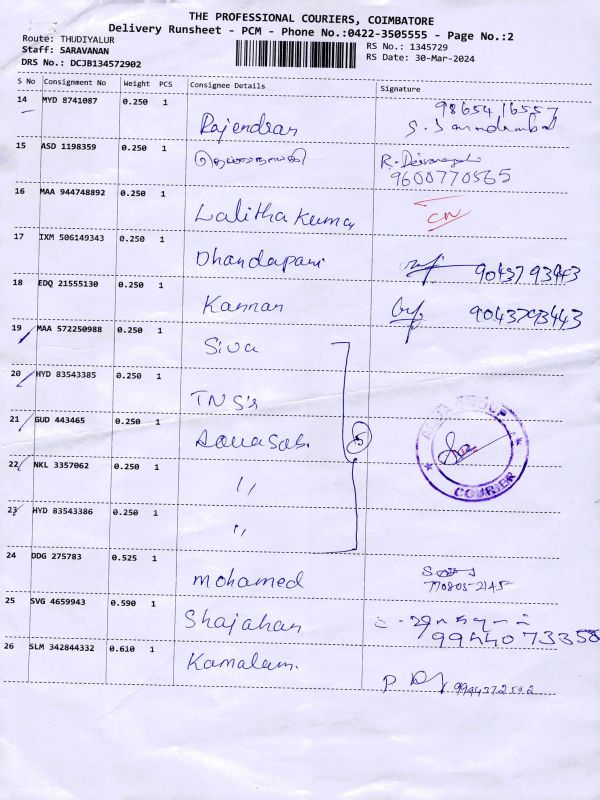 THE PROFESSIONAL COURIERS, COIMBATORE
Delivery Runsheet - PCM - Phone No.:0422-3505555 - Page No.:2
Route: THUDIYALUR
RS No.: 1345729
Staff: SARAVANAN
RS Date: 30-Mar-2024
DRS No.: DCJB134572902
S No Consignment No Weight PCS Consignee Details Signature
14 MYD 8741087 0.250 1 Rajendran
15 ASD 1198359 0.250 1
R. Deivanayaki
9600770565
16 MAA 944748892 0.250 1 Lalitha Kumar CN
17 IXM 506149343 0.250 1 Dhandapani 9043793443
18 EDQ 21555130 0.250 1 Kannan 9043793443
19 MAA 572250988 0.250 1 Siva
20 HYD 83543385 0.250 1 TNS's
21 GUD 443465 0.250 1 5
22 NKL 3357062 0.250 1 "
23 HYD 83543386 0.250 1 "
COURIER
24 DDG 275783 0.525 1 mohamed
25 SVG 4659943 0.590 1 Shajahan
26 SLM 342844332 0.610 1 Kamalam.